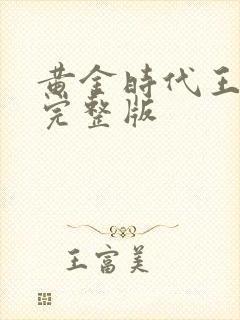 黄金時代王
完整版
王富美